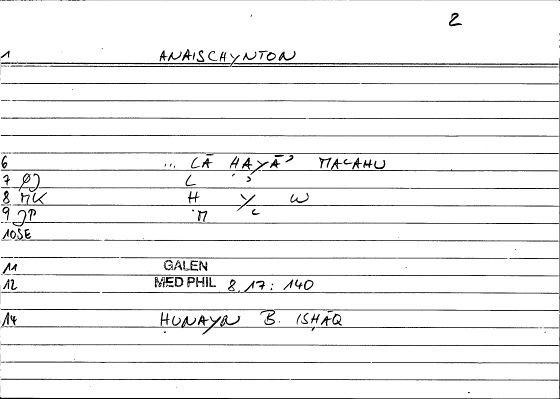 2
1 ANAISCHYNTON
6 ... LĀ HAYĀʾ MAʿAHU
7 L ʾ
8 MK H Y W
9 M ʿ
10 SE
11 GALEN
12 MED PHIL 8, 17: 140
14 ḤUNAYN B. ISḤĀQ